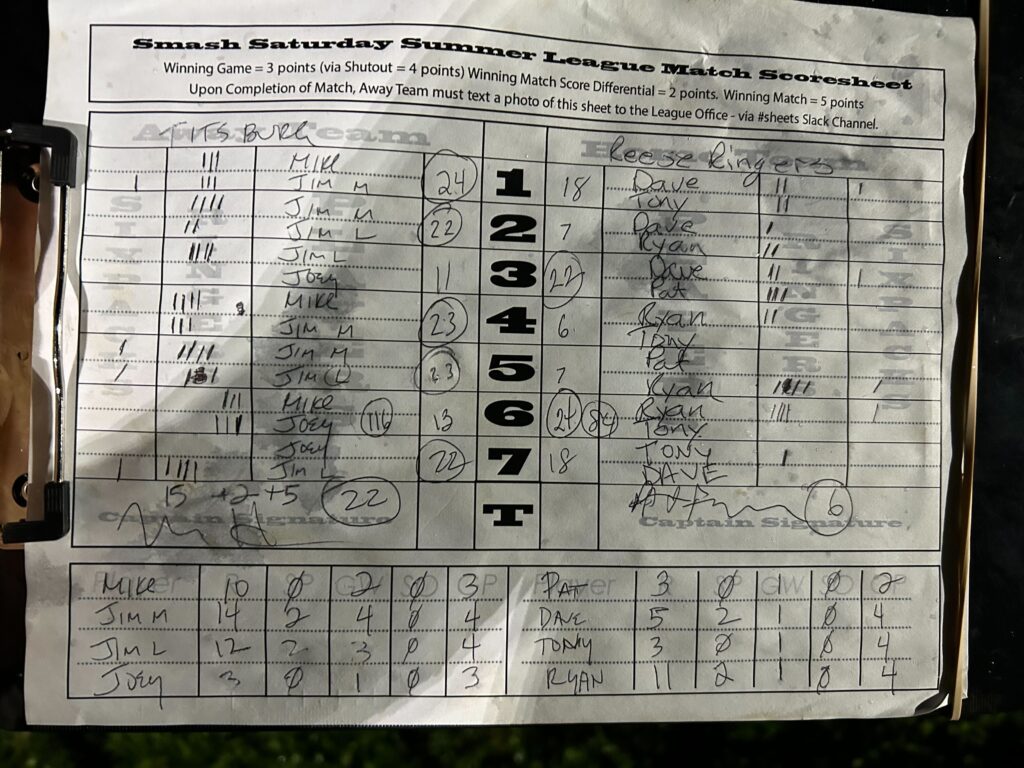 Smash Saturday Summer League Match Scoresheet
Winning Game = 3 points (via Shutout = 4 points) Winning Match Score Differential = 2 points. Winning Match = 5 points
Upon Completion of Match, Away Team must text a photo of this sheet to the League Office - via #sheets Slack Channel.
TITSBURG Team Reese Ringers
MIKE 24 1 18 Dave
JIM M Tony
JIM M 22 2 7 Dave
JIM L Ryan
JIM L 11 3 22 Dave
JOEY Pat
MIKE 23 4 6 Ryan
JIM M Tony
JIM M 23 5 7 Pat
JIM L Ryan
MIKE 13 6 24 84 Ryan
JOEY 116 Tony
JOEY 22 7 18 TONY
JIM L DAVE
15 +2 +5 22 T 6
Captain Signature Captain Signature
MIKE 10 0 2 0 3 PAT 3 0 1 0 2
JIM M 14 2 4 0 4 DAVE 5 2 1 0 4
JIM L 12 2 3 0 4 TONY 3 0 1 0 4
JOEY 3 0 1 0 3 RYAN 11 2 1 0 4